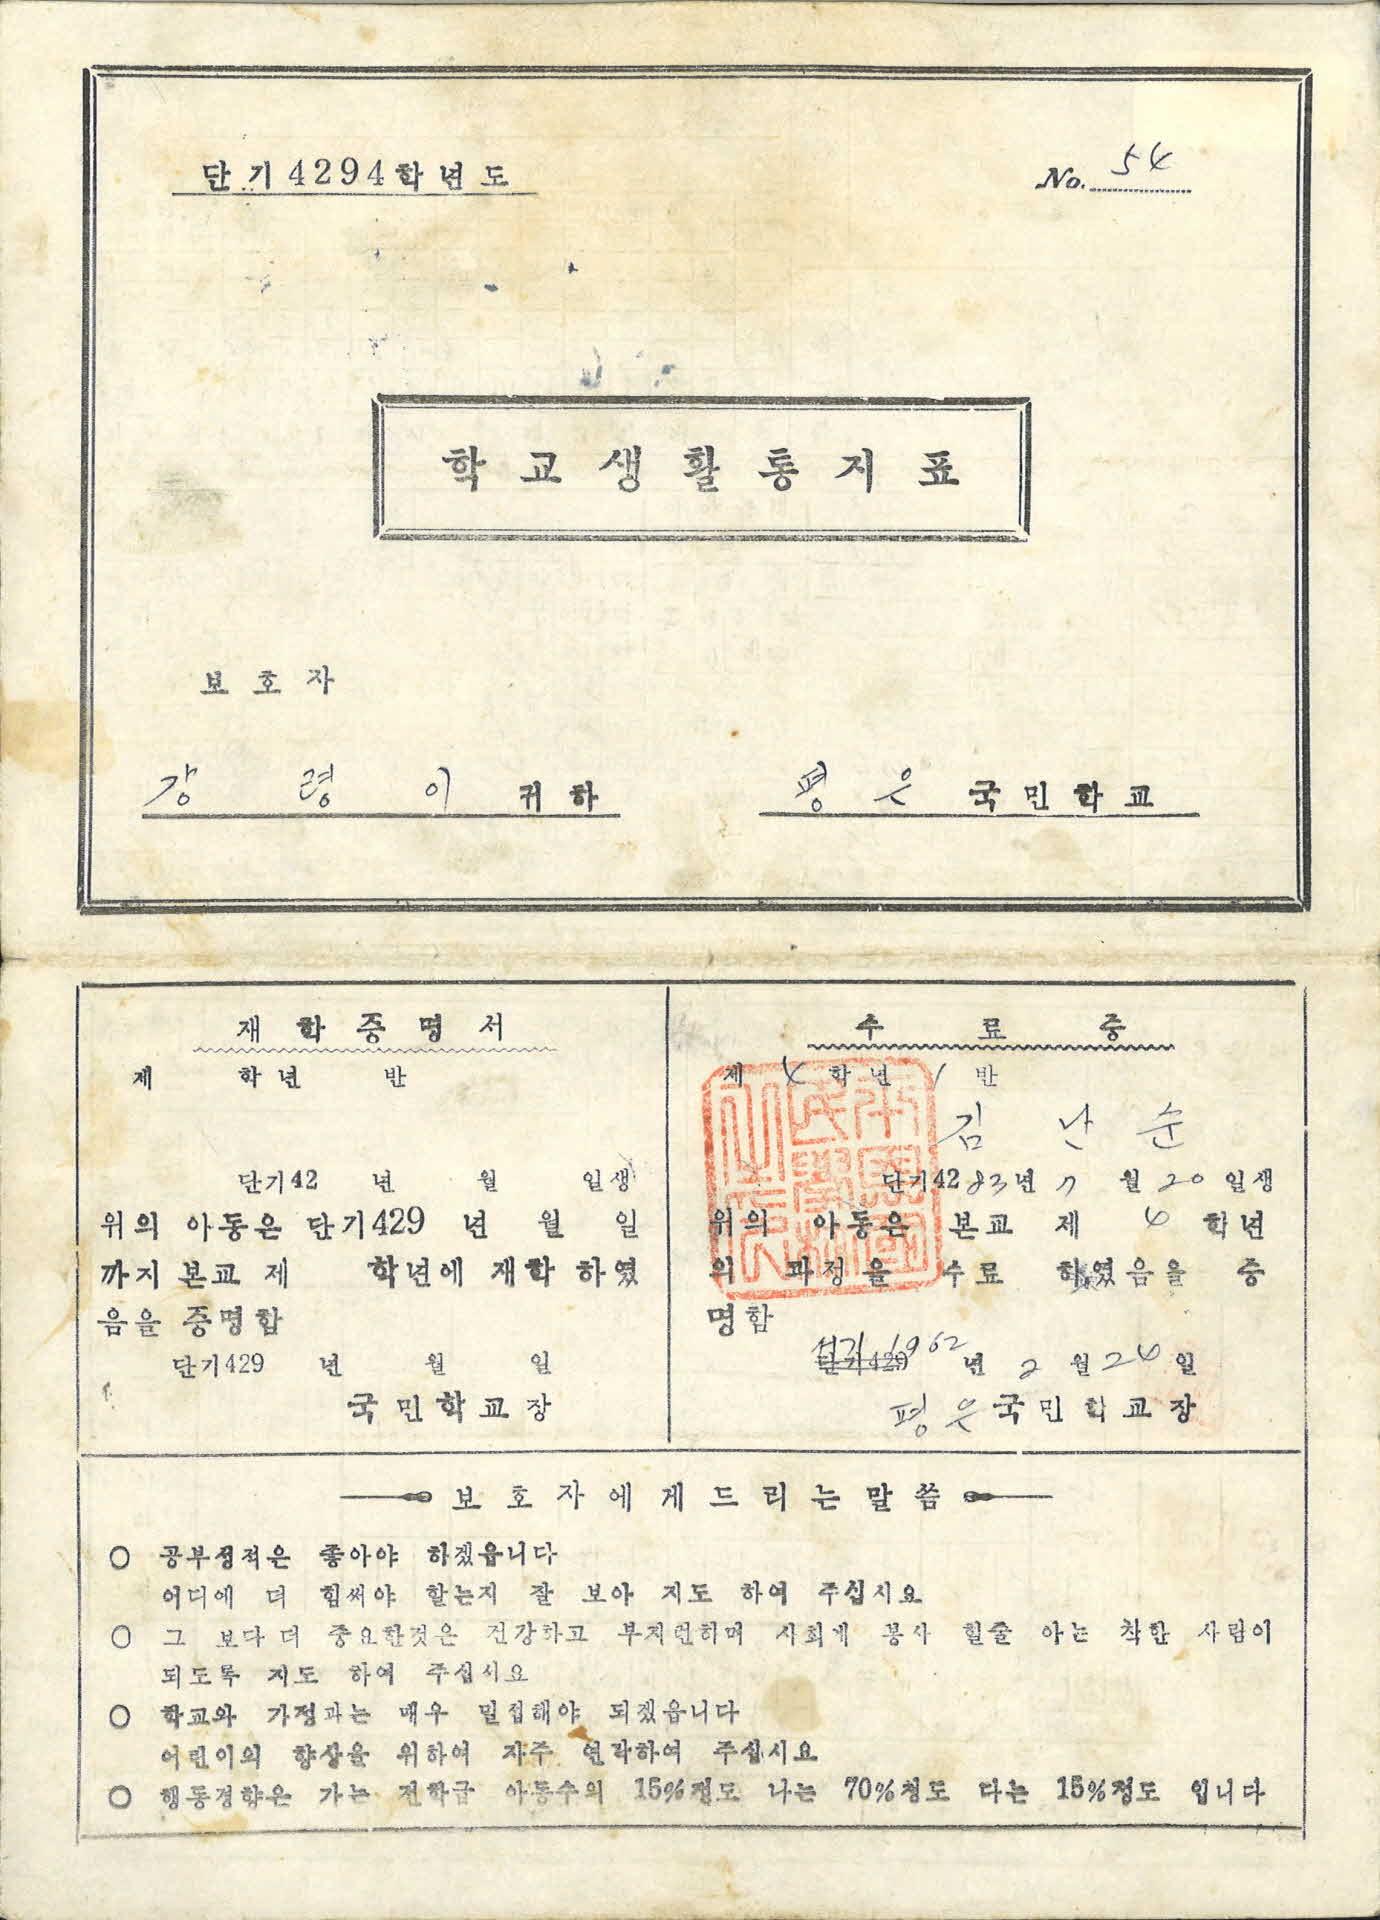 단기4294학년도
No. 54
학교생활통지표
보호자
강령이 귀하
평은 국민학교
재학증명서
제 학년 반
단기42 년 월 일생
위의 아동은 단기429 년 월 일
까지 본교 제 학년에 재학 하였
음을 증명함
단기429 년 월 일
국민학교장
수료증
제 4 학년 1 반
김난순
단기4283년 7월 20일생
위의 아동은 본교 제 4 학년
의 과정을 수료 하였음을 증
명함
서기 1962
단기429 년 2월 24일
평은국민학교장
보호자에게드리는말씀
○ 공부성적은 좋아야 하겠읍니다
어디에 더 힘써야 할는지 잘 보아 지도 하여 주십시요
○ 그 보다 더 중요한것은 건강하고 부지런하며 사회에 봉사 할줄 아는 착한 사람이
되도록 지도 하여 주십시요
○ 학교와 가정과는 매우 밀접해야 되겠읍니다
어린이의 향상을 위하여 자주 연락하여 주십시요
○ 행동경향은 가는 전학급 아동수의 15%정도 나는 70%정도 다는 15%정도 입니다